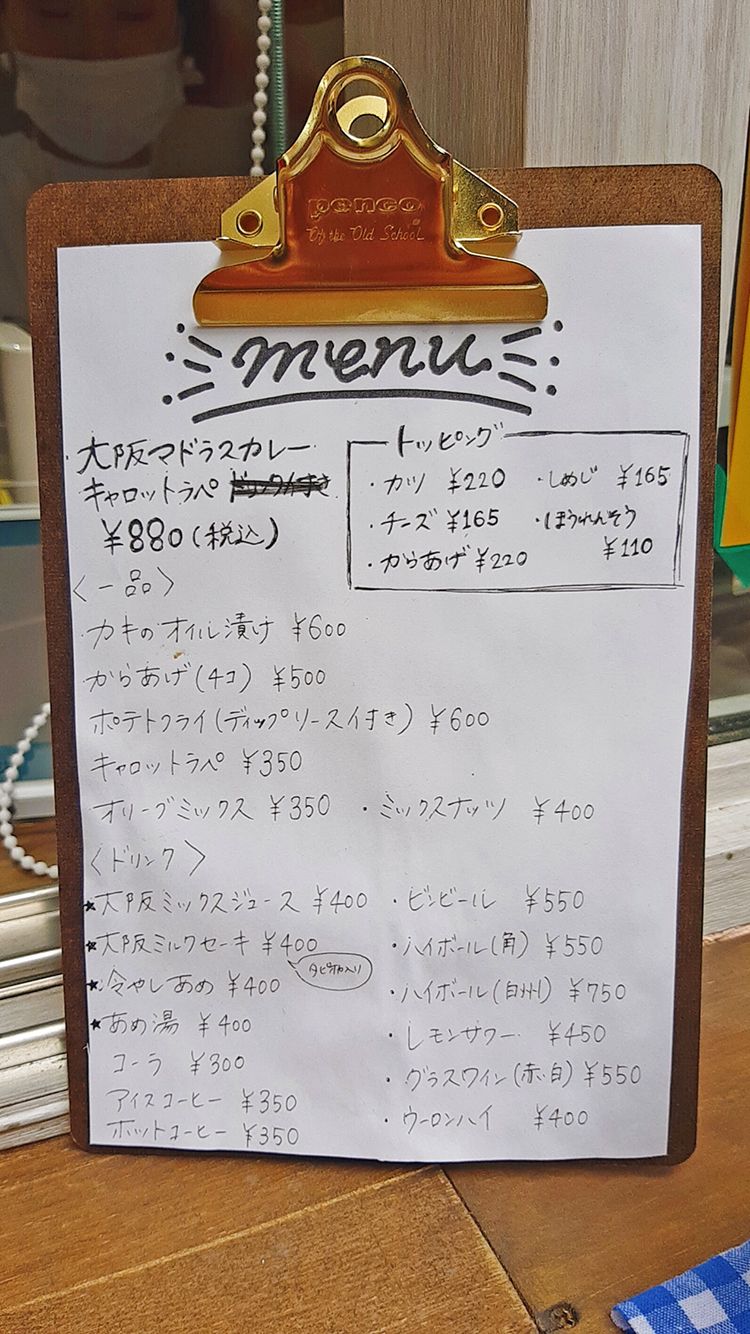 penco
Of the Old School
menu
大阪マドラスカレー
キャロットラペ
¥880(税込)
トッピング
・カツ ¥220 ・しめじ ¥165
・チーズ ¥165 ・ほうれんそう
¥110
・からあげ ¥220
〈一品〉
カキのオイル漬け ¥600
からあげ(4コ) ¥500
ポテトフライ(ディップソース付き) ¥600
キャロットラペ ¥350
オリーブミックス ¥350 ・ミックスナッツ ¥400
〈ドリンク〉
★大阪ミックスジュース ¥400 ・ビンビール ¥550
★大阪ミルクセーキ ¥400 ・ハイボール(角) ¥550
タピオカ入り
★冷やしあめ ¥400 ・ハイボール(白州) ¥750
★あめ湯 ¥400 ・レモンサワー ¥450
コーラ ¥300 ・グラスワイン(赤、白) ¥550
アイスコーヒー ¥350 ・ウーロンハイ ¥400
ホットコーヒー ¥350